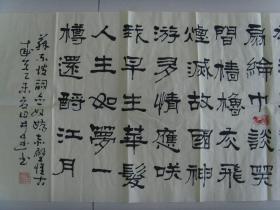 扇綸巾談笑
間檣櫓灰飛
煙滅故國神
游多情應咲
我早生華髮
人生如夢一
樽還酹江月
蘇東坡詞念奴嬌赤壁懷古